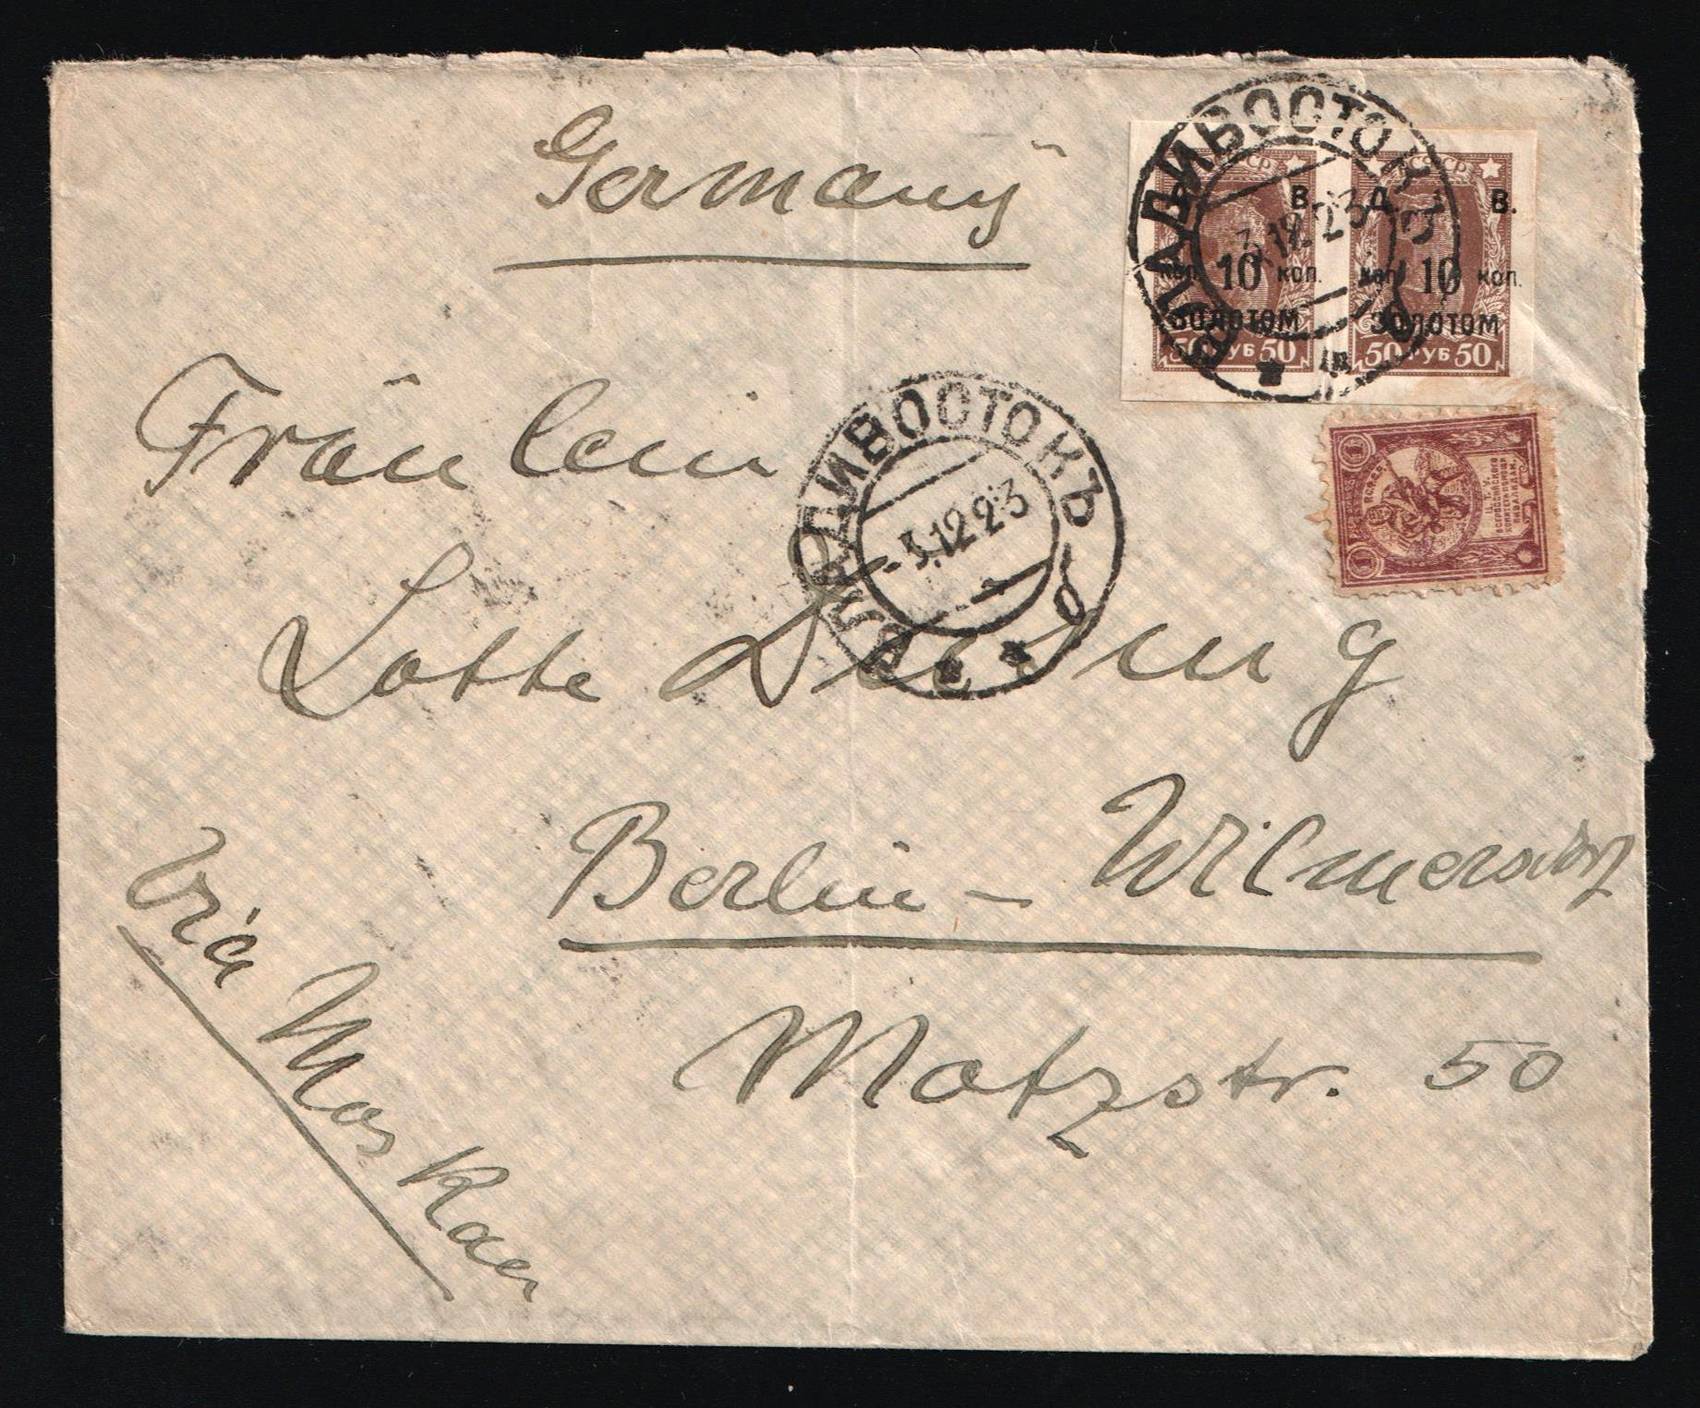 Germany
Fräulein
Lotte
Berlin - Wilmersdorf
Motzstr. 50
Via Moskau
ВЛАДИВОСТОКЪ
-3.12.23
ВЛАДИВОСТОКЪ
12 23
Д. В.
коп. 10 коп.
ЗОЛОТОМ
50 РУБ 50
В.
коп. 10 коп.
ЗОЛОТОМ
50 РУБ 50
1
1